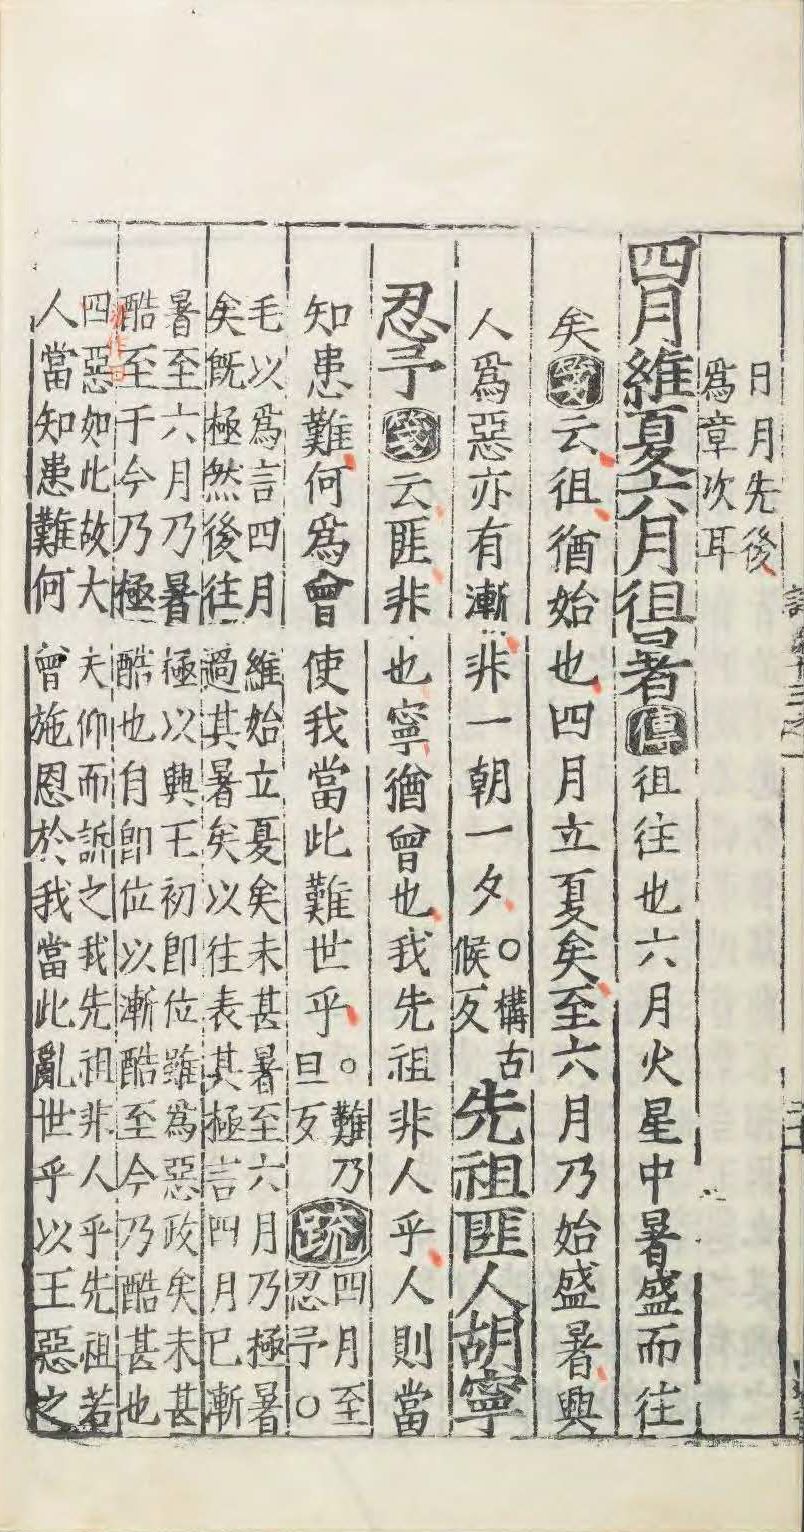 日月先後
爲章次耳
四月維夏六月徂暑傳徂往也六月火星中暑盛而往
矣箋云徂猶始也四月立夏矣至六月乃始盛暑興
人爲惡亦有漸非一朝一夕○構古
候反
先祖匪人胡寧
忍予箋云匪非也寧猶曾也我先祖非人乎人則當
知患難何爲曾使我當此難世乎○難乃
旦反
疏四月至
忍予○
毛以爲言四月維始立夏矣未甚暑至六月乃極暑
矣既極然後往過其暑矣以往表其極言四月已漸
暑至六月乃暑極以興王初即位雖爲惡政矣未甚
酷至于今乃極酷也自即位以漸酷至今乃酷甚也
四惡如此故大夫仰而訴之我先祖非人乎先祖若
人當知患難何曾施恩於我當此亂世乎以王惡之
作